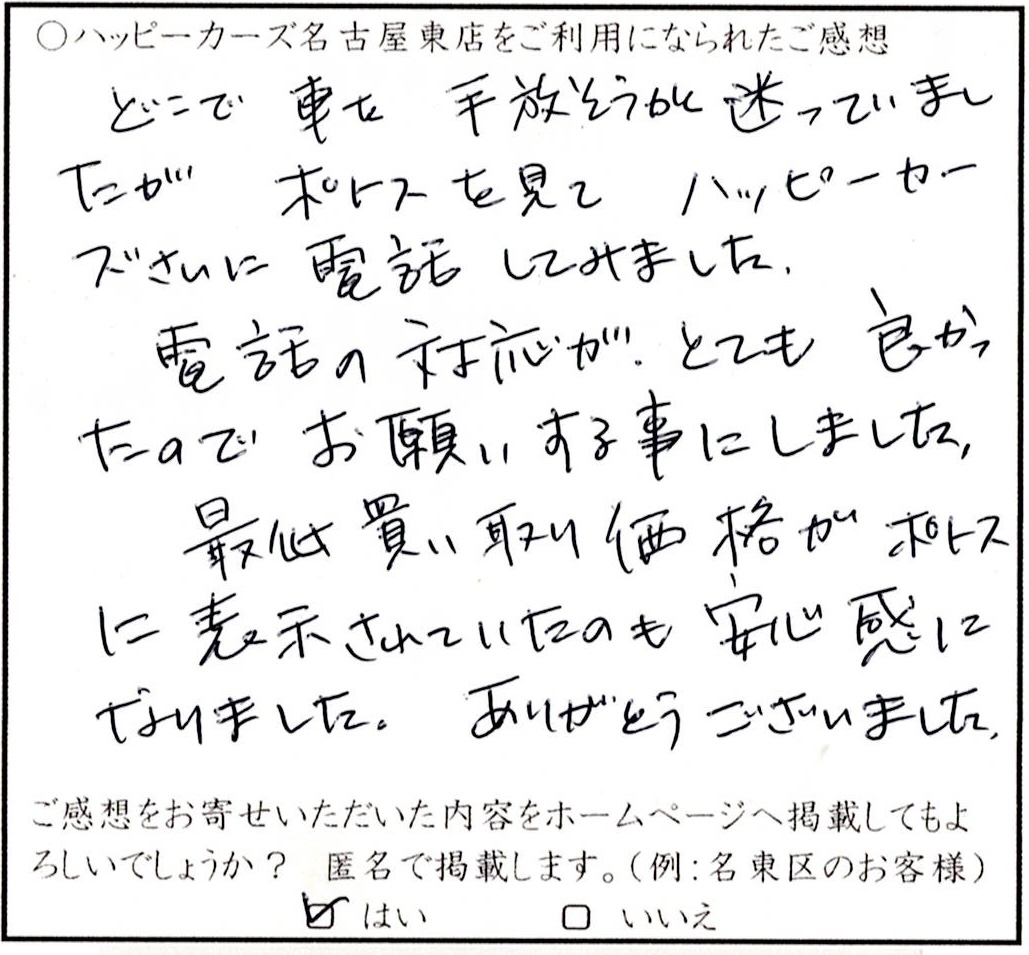 ○ハッピーカーズ名古屋東店をご利用になられたご感想
どこで 車を 手放そうかと 迷っていまし
たが ポストを見て ハッピーカー
ズさんに 電話 してみました。
電話の 対応が、とても 良かっ
たので お願いする事にしました。
最低 買い取り 価格が ポスト
に 表示されていたのも 安心感に
なりました。 ありがとうございました。
ご感想をお寄せいただいた内容をホームページへ掲載してもよ
ろしいでしょうか？ 匿名で掲載します。（例：名東区のお客様）
☑ はい □ いいえ